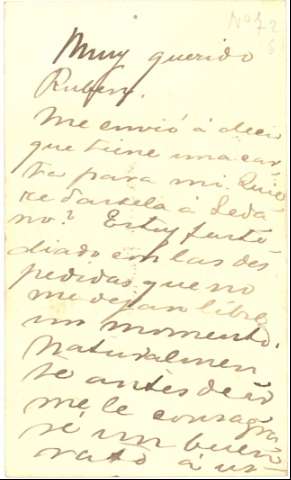 Nº 72
Muy querido
Ruben.
Me envió á decir
que tiene una car
ta para mi. Quie
re darsela á Seda
no? Estoy fasti
diado con las des
pedidas que no
me dejan libre
un momento.
Naturalmen
te antes de ir
me, le consagra
ré un buen
rato á us-